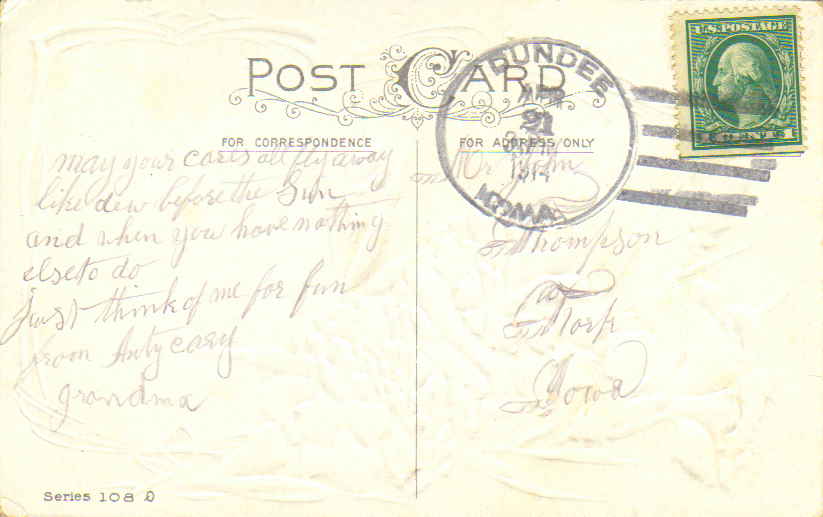 POST CARD
FOR CORRESPONDENCE
FOR ADDRESS ONLY
U.S. POSTAGE
CENTS
DUNDEE
APR
21
1914
IOWA
may your cares all fly away
like dew before the Sun
and when you have nothing
else to do
Just think of me for fun
from Anty cary
grandma
Mr John
Thompson
Iowa
Series 108 D